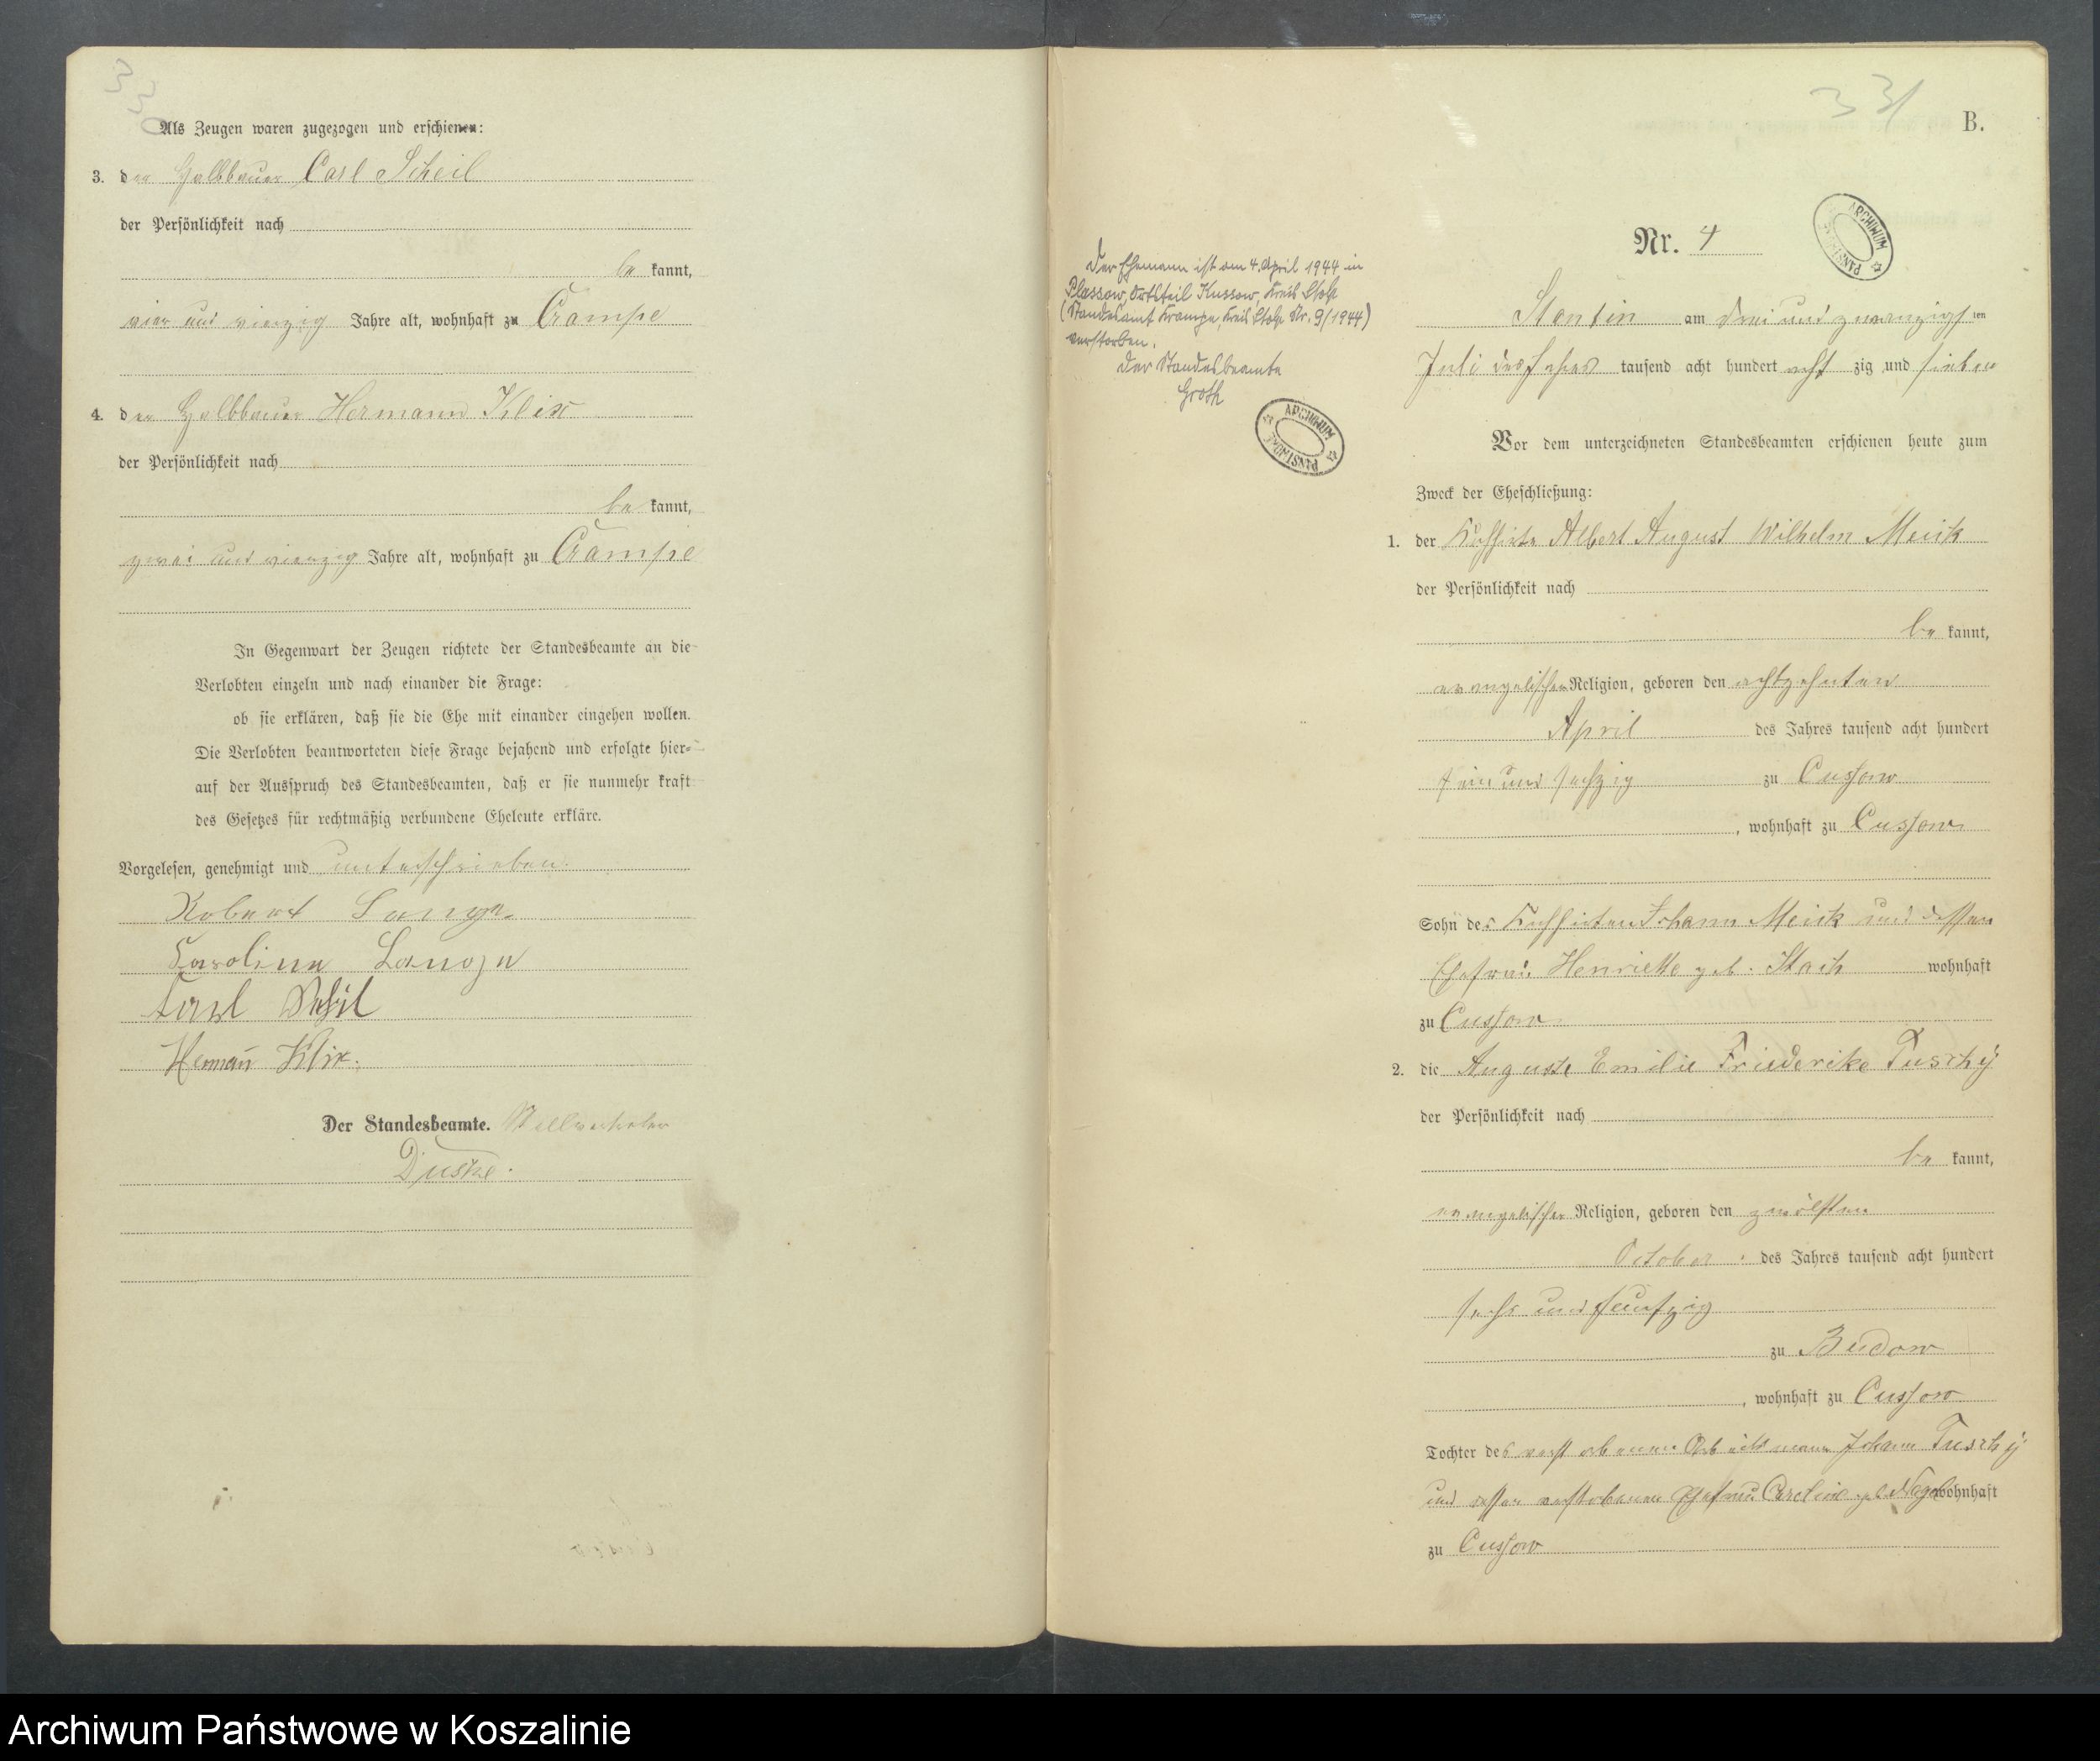 330
Als Zeugen waren zugezogen und erschienen:
3. der Halbbauer Carl Scheil
der Persönlichkeit nach
be kannt,
vier und vierzig Jahre alt, wohnhaft zu Crampe
4. der Halbbauer Hermann Klix
der Persönlichkeit nach
be kannt,
zwei und vierzig Jahre alt, wohnhaft zu Crampe
In Gegenwart der Zeugen richtete der Standesbeamte an die
Verlobten einzeln und nach einander die Frage:
ob sie erklären, daß sie die Ehe mit einander eingehen wollen.
Die Verlobten beantworteten diese Frage bejahend und erfolgte hier-
auf der Ausspruch des Standesbeamten, daß er sie nunmehr kraft
des Gesetzes für rechtmäßig verbundene Eheleute erkläre.
Vorgelesen, genehmigt und unterschrieben.
Robert Lange
Caroline Lange
Carl Scheil
Hermañ Klix.
Der Standesbeamte.
Duske.
331
B.
Nr. 4
ARCHIWUM PAŃSTWOWE
Der Ehemann ist am 4. April 1944 in
Plassow, Ortsteil Kussow, Kreis Stolp
(Standesamt Krampe, Kreis Stolp Nr. 9/1944)
verstorben.
Der Standesbeamte
Groth
ARCHIWUM PAŃSTWOWE
Stantin am drei und zwanzigsten
Juli des Jahres tausend acht hundert acht zig und sieben
Vor dem unterzeichneten Standesbeamten erschienen heute zum
Zweck der Eheschließung:
1. der Kossäte Albert August Wilhelm Meick
der Persönlichkeit nach
be kannt,
evangelischer Religion, geboren den achtzehnten
April des Jahres tausend acht hundert
ein und sechzig zu Cussow
, wohnhaft zu Cussow
Sohn des Kossäten Johann Meick und dessen
Ehefrau Henriette geb. Stach wohnhaft
zu Cussow
2. die Auguste Emilie Friederike Tuschÿ
der Persönlichkeit nach
be kannt,
evangelischer Religion, geboren den zwölften
October des Jahres tausend acht hundert
sechs und fünfzig
zu Budow
, wohnhaft zu Cussow
Tochter des verstorbenen Johann Tuschÿ
und dessen verstorbenen Ehefrau Caroline geb. wohnhaft
zu Cussow
Archiwum Państwowe w Koszalinie